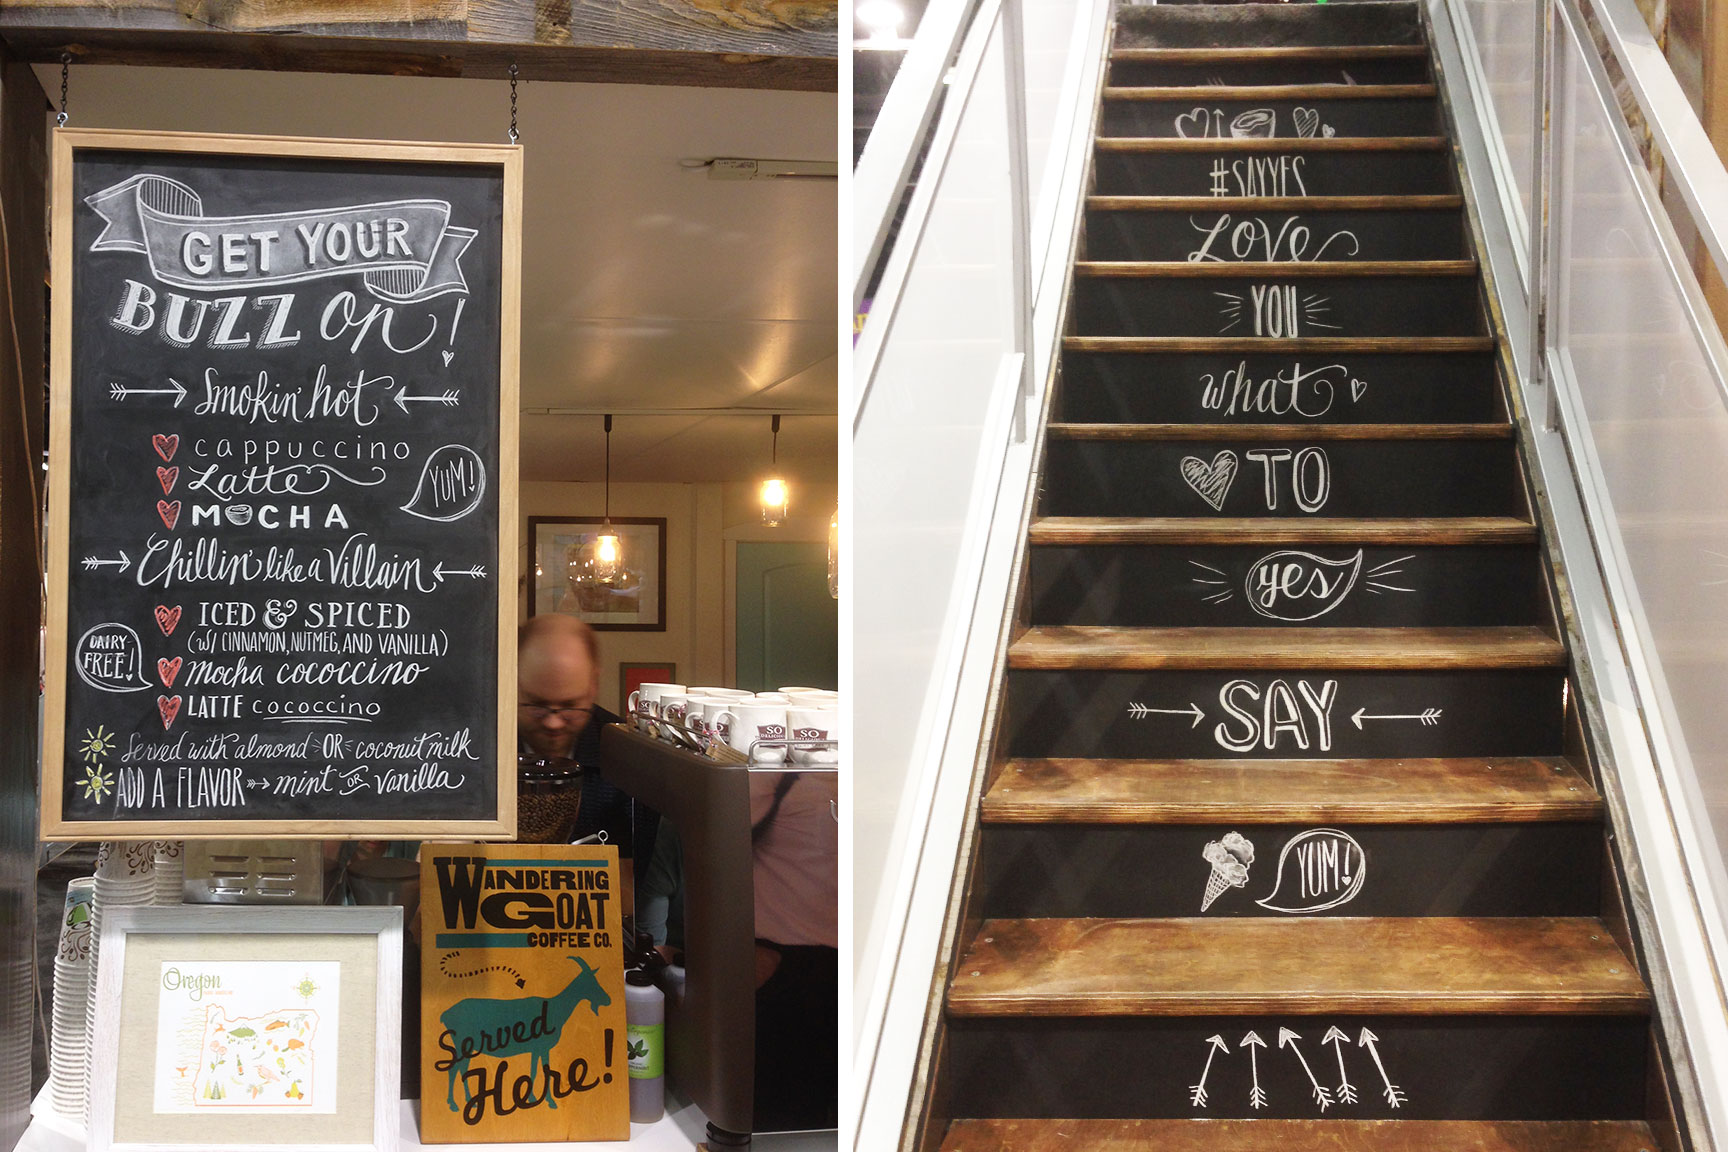 GET YOUR
BUZZ on!
Smokin' hot
cappuccino
Latte
MOCHA
YUM!
Chillin' like a Villain
ICED & SPICED
(W/ CINNAMON, NUTMEG, AND VANILLA)
DAIRY-
FREE!
mocha cococcino
LATTE cococcino
Served with almond OR coconut milk
ADD A FLAVOR mint or vanilla
SO
DELICIOUS
SO
Oregon
WANDERING
GOAT
COFFEE CO.
Served
Here!
#SAYYES
Love
YOU
what
TO
yes
SAY
YUM!